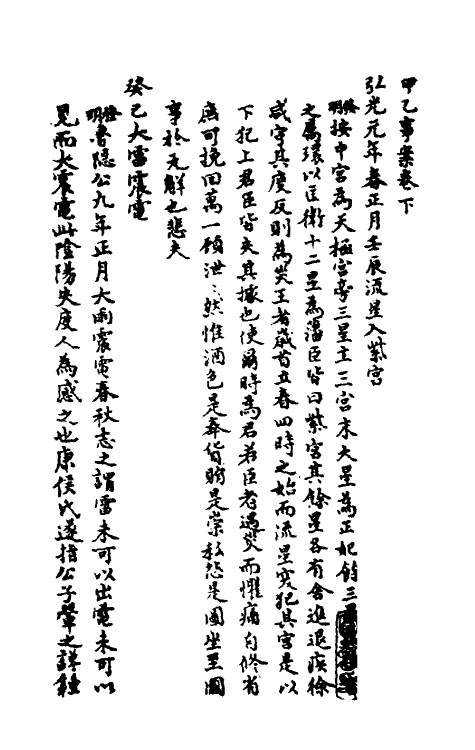 甲乙事案卷下
弘光元年春正月壬辰流星入紫宮
發明按中宮為天極宮旁三星主三宮末大星為正妃餘三星
之屬環以匡衛十二星為藩臣皆曰紫宮其餘星各有舍進退疾徐
咸守其度反則為災王者歲首立春四時之始而流星突犯其宮是以
下犯上君臣皆失其據也使爾時為君若臣者遇災而懼痛自修省
庶可挽回萬一顧泄泄然惟酒色是奉貨賄是崇私怨是圖坐至國
事於无解也悲夫
癸巳大雷震電
發明魯隱公九年正月大雨震電春秋志之謂雷未可以出電未可以
見而大震電此陰陽失度人為感之也康侯氏遂指公子翬之誅鍾